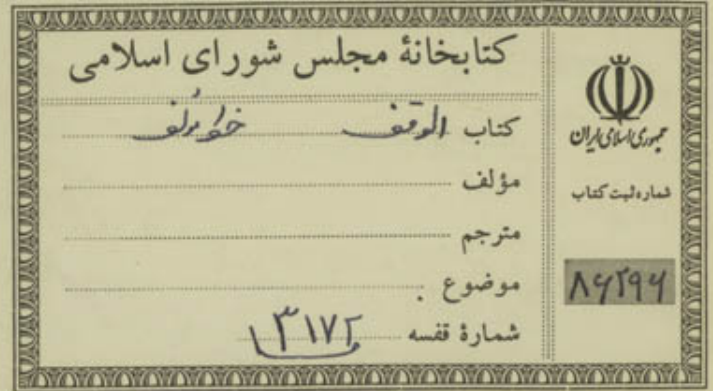 کتابخانهٔ مجلس شورای اسلامی
کتاب الوقف
مؤلف
مترجم
موضوع
شمارهٔ قفسه ۳۱۷۲
جمهوری اسلامی ایران
شماره ثبت کتاب
۸۶۲۹۶